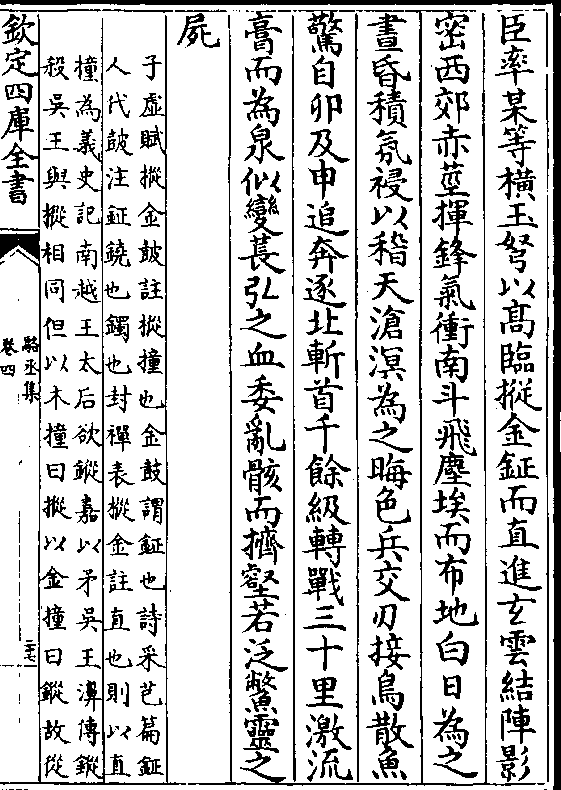 臣率某等橫玉弩以髙臨摐金鉦而直進玄雲結陣影
密西郊赤莖揮鋒氣衝南斗飛塵埃而布地白日為之
晝昏積氛祲以稽天滄溟為之晦色兵交刃接鳥散魚
驚自卯及申追奔逐北斬首千餘級轉戰三十里激流
膏而為泉似變萇弘之血委亂骸而擠壑若泛鱉靈之
屍
子虛賦摐金鼓註摐撞也金鼓謂鉦也詩采芑篇鉦
人代鼓注鉦鐃也鐲也封禪表摐金註直也則以直
撞為義史記南越王太后欲鏦嘉以矛吳王濞傳鏦
殺吳王與摐相同但以木撞曰摐以金撞曰鏦故從
欽定四庫全書
駱丞集
卷四
二七